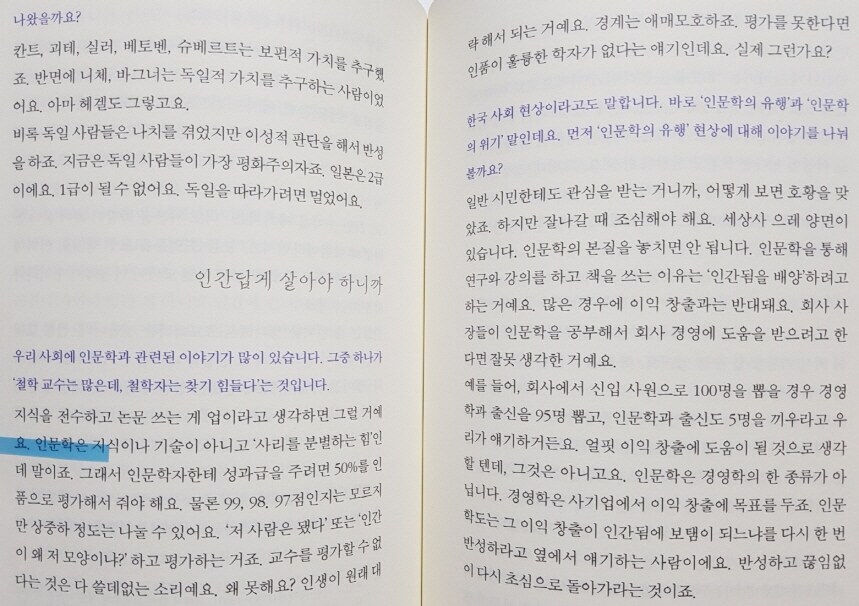 나왔을까요?
칸트, 괴테, 실러, 베토벤, 슈베르트는 보편적 가치를 추구했
죠. 반면에 니체, 바그너는 독일적 가치를 추구하는 사람이었
어요. 아마 헤겔도 그렇고요.
비록 독일 사람들은 나치를 겪었지만 이성적 판단을 해서 반성
을 하죠. 지금은 독일 사람들이 가장 평화주의자죠. 일본은 2급
이에요. 1급이 될 수 없어요. 독일을 따라가려면 멀었어요.
인간답게 살아야 하니까
우리 사회에 인문학과 관련된 이야기가 많이 있습니다. 그중 하나가
'철학 교수는 많은데, 철학자는 찾기 힘들다'는 것입니다.
지식을 전수하고 논문 쓰는 게 업이라고 생각하면 그럴 거예
요. 인문학은 지식이나 기술이 아니고 '사리를 분별하는 힘'인
데 말이죠. 그래서 인문학자한테 성과급을 주려면 50%를 인
품으로 평가해서 줘야 해요. 물론 99, 98. 97점인지는 모르지
만 상중하 정도는 나눌 수 있어요. '저 사람은 됐다' 또는 '인간
이 왜 저 모양이냐?' 하고 평가하는 거죠. 교수를 평가할 수 없
다는 것은 다 쓸데없는 소리예요. 왜 못해요? 인생이 원래 대
략 해서 되는 거예요. 경계는 애매모호하죠. 평가를 못한다면
인품이 훌륭한 학자가 없다는 얘기인데요. 실제 그런가요?
한국 사회 현상이라고도 말합니다. 바로 '인문학의 유행'과 '인문학
의 위기' 말인데요. 먼저 '인문학의 유행' 현상에 대해 이야기를 나눠
볼까요?
일반 시민한테도 관심을 받는 거니까, 어떻게 보면 호황을 맞
았죠. 하지만 잘나갈 때 조심해야 해요. 세상사 으레 양면이
있습니다. 인문학의 본질을 놓치면 안 됩니다. 인문학을 통해
연구와 강의를 하고 책을 쓰는 이유는 '인간됨을 배양'하려고
하는 거예요. 많은 경우에 이익 창출과는 반대돼요. 회사 사
장들이 인문학을 공부해서 회사 경영에 도움을 받으려고 한
다면 잘못 생각한 거예요.
예를 들어, 회사에서 신입 사원으로 100명을 뽑을 경우 경영
학과 출신을 95명 뽑고, 인문학과 출신도 5명을 끼우라고 우
리가 얘기하거든요. 얼핏 이익 창출에 도움이 될 것으로 생각
할 텐데, 그것은 아니고요. 인문학은 경영학의 한 종류가 아
닙니다. 경영학은 사기업에서 이익 창출에 목표를 두죠. 인문
학도는 그 이익 창출이 인간됨에 보탬이 되느냐를 다시 한 번
반성하라고 옆에서 얘기하는 사람이에요. 반성하고 끊임없
이 다시 초심으로 돌아가라는 것이죠.